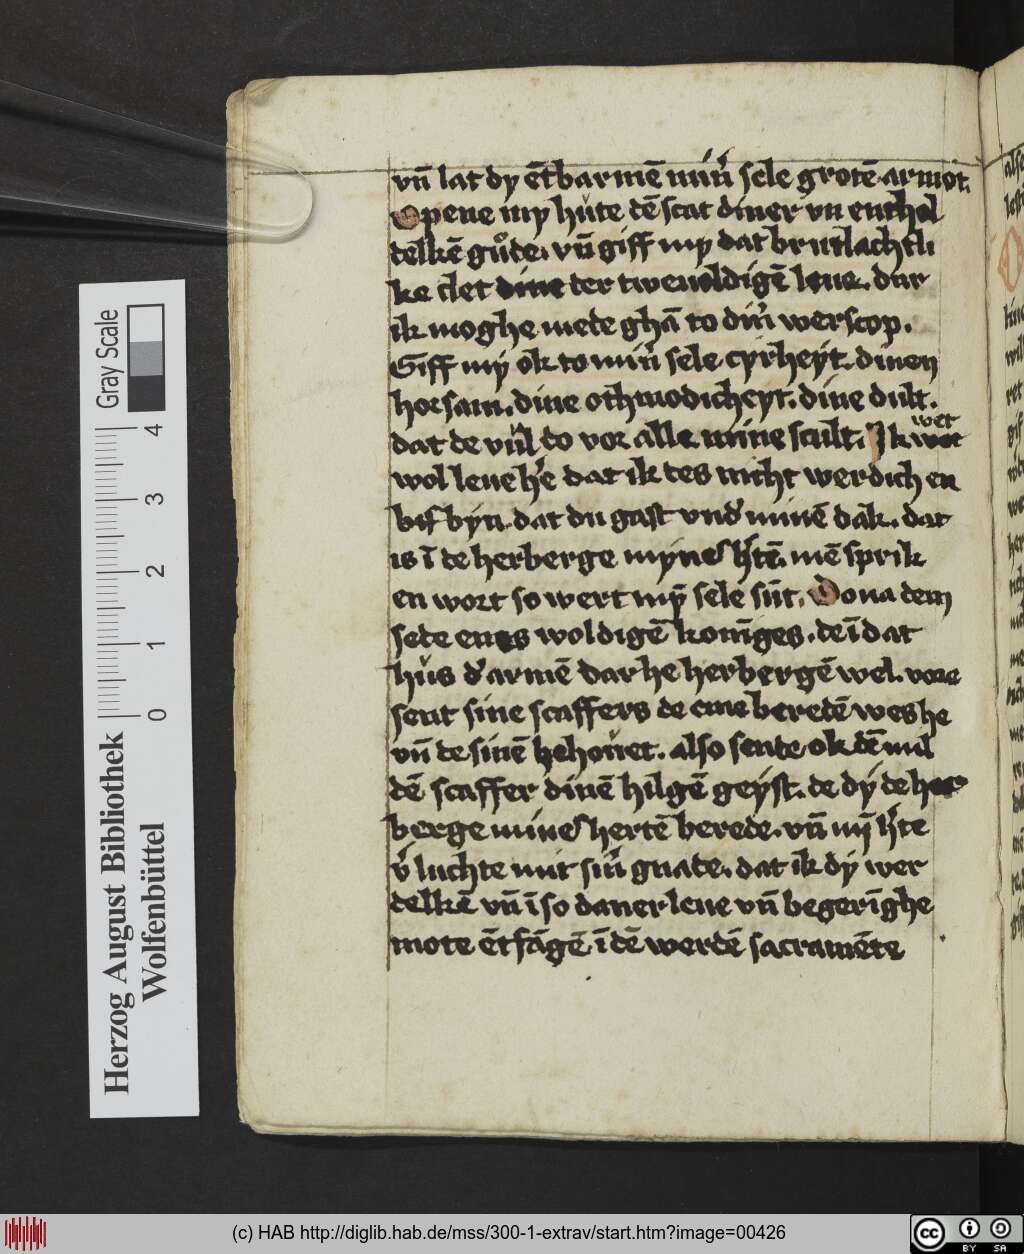 vn̄ lat dy ētbarmē miň sele grotē armot.
Opene my hute dē scat diner vn enthol
telkē gůde. vn̄ giff my dat brutlachtli
ke clet dine ter twevoldigē leue. dar
ik moghe mete ghā to diň werscop.
Giff my ok to miň sele cyrheyt. dinen
horsam. dine othmodicheyt. dine dult.
dat de vůl do vor alle mine scult. Jk wet
wol leue h'e dat ik tes nicht werdich en
bif byn. dat du gast vnd' minē dak. dat
is ī te herberge myne' h'tē. mē sprik
en wort so wert my sele sūt. Do na dem
sede enes woldigē konīges. de ī dat
hůs d' armē dar he herbergē wel. vore
sent sine scaffers de eme beredē wes he
vn̄ de sinē behouet. also sente ok dē mil
dē scaffer dinē hilgē geyst. de dy de her
berge mine' hertē berede. vn̄ my h'te
v'luchte mit siň gnade. dat ik dy wer
telkē vn̄ ī so daner leue vn̄ begerīghe
mote ētfāgē ī dē werdē sacramēte
Gray Scale
0 1 2 3 4
Herzog August Bibliothek
Wolfenbüttel
(c) HAB http://diglib.hab.de/mss/300-1-extrav/start.htm?image=00426
cc BY SA